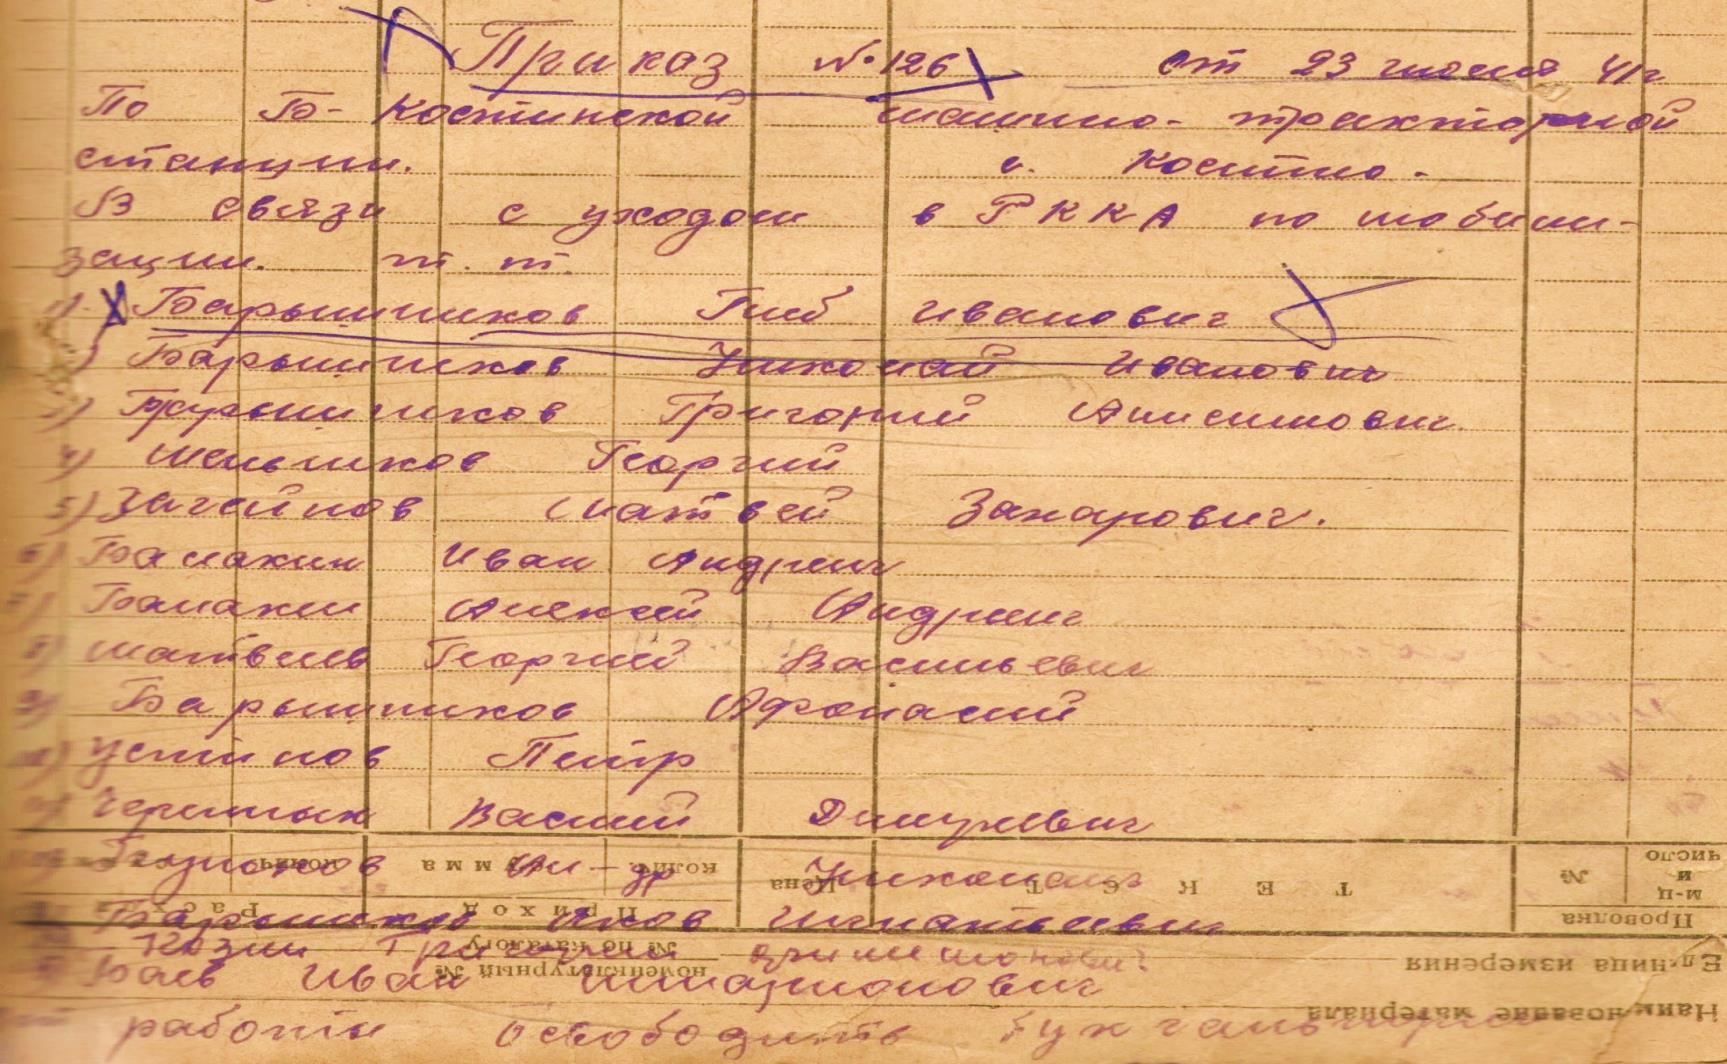 Приказ № 126 от 23 июня 41 г
По Б-Костинской машинно-тракторной
станции. с. Костино.
В связи с уходом в РККА по мобили-
зации т.т.
1) Барышников Глеб Иванович
2) Барышников Николай Иванович
3) Барышников Григорий Анисимович
4) Мельников Георгий
5) Загайнов Матвей Захарович.
6) Балакин Иван Андреич
7) Балакин Алексей Андреич
8) Матвеев Георгий Васильевич
9) Барышников Афонасий
10) Устинов Петр
11) Черемных Василий
Ал-др Николаич
Барышников Яков Игнатьевич
Козин Григорий
Баев Иван
работы освободить бухгалтерия
Наименование материала
Единица измерения
номенклатурный №
№ по каталогу
Проводка
Приход
Расход
м-ц и число
№
ТЕКСТ
Цена
колич.
сумма
колич.